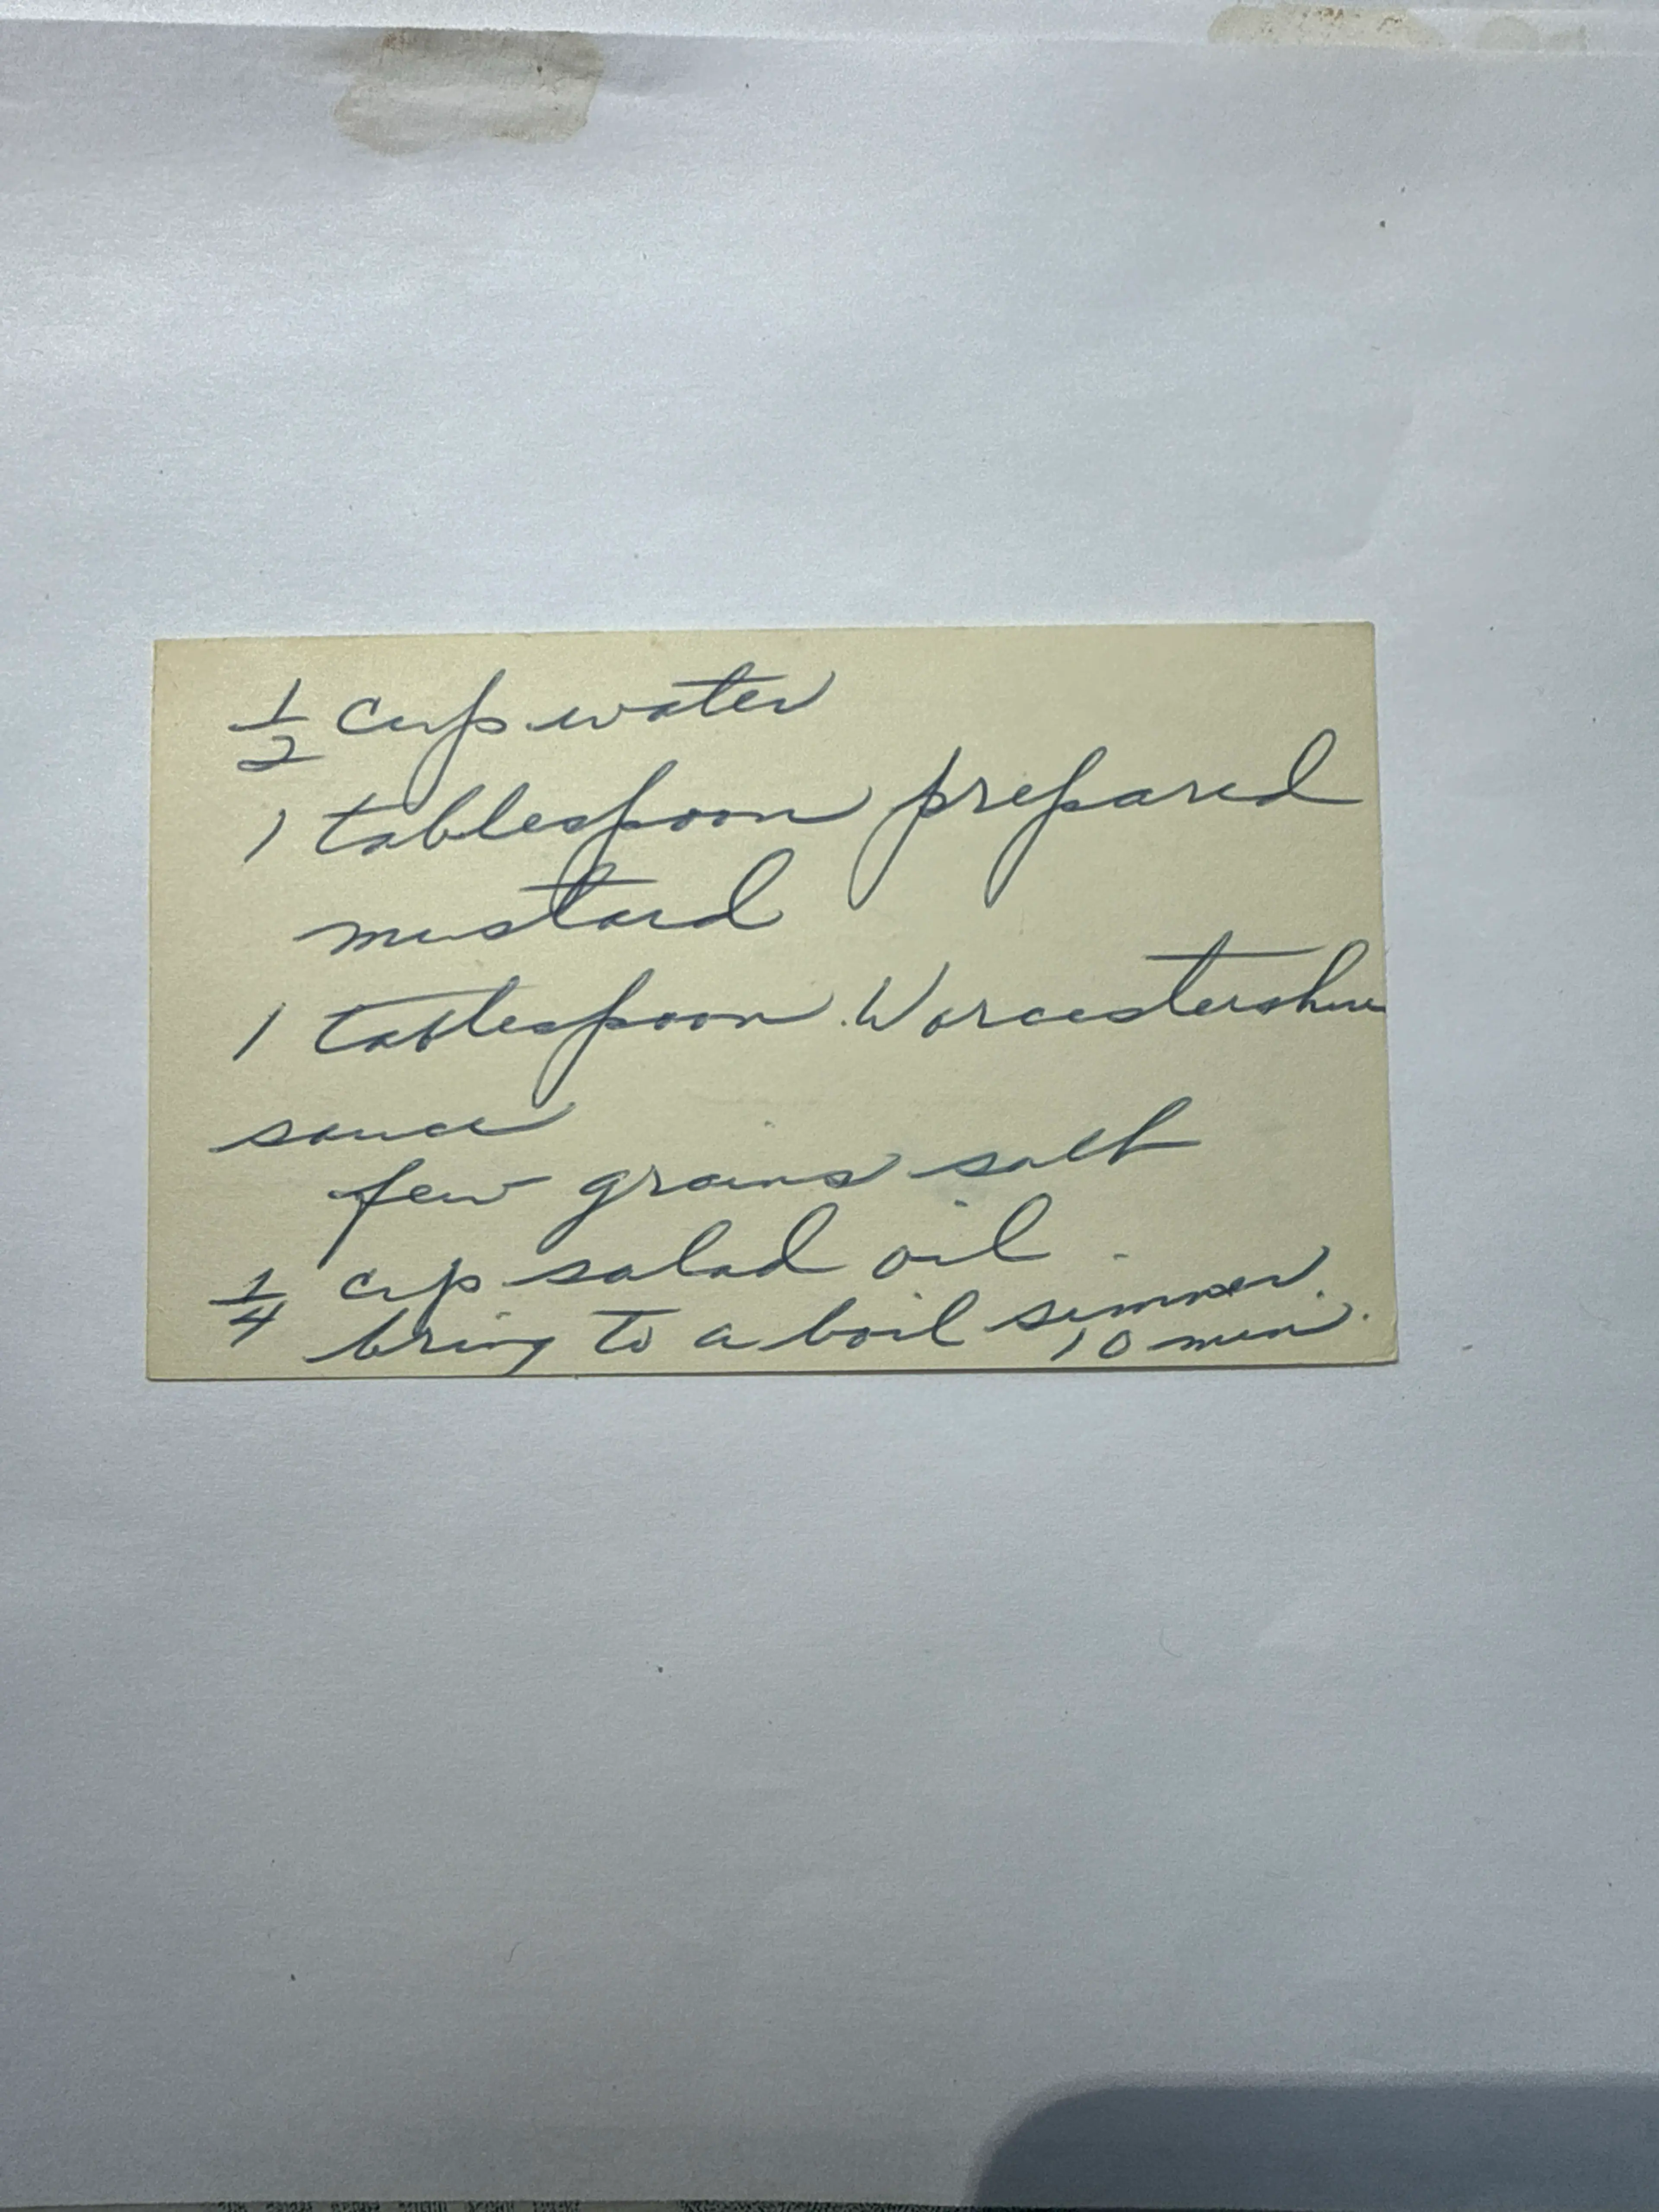 1/2 cup water
1 tablespoon prepared
mustard
1 tablespoon Worcestershire
sauce
few grains salt
1/4 cup salad oil
bring to a boil simmer
10 min.